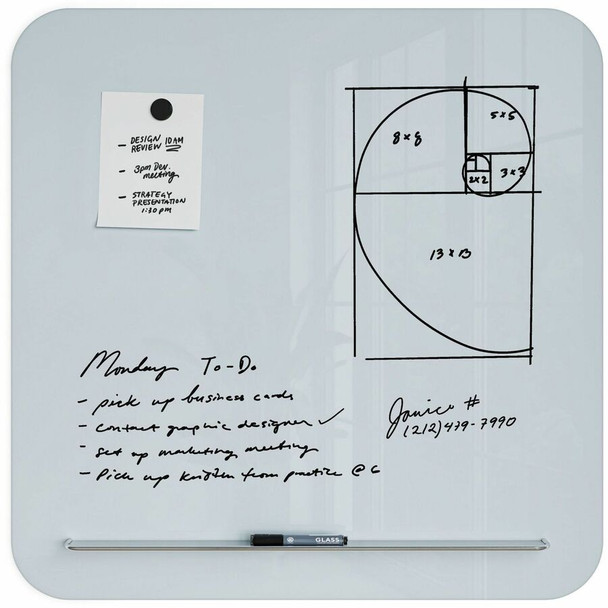 - DESIGN
REVIEW 10AM
- 3pm Dev.
meeting
- STRATEGY
PRESENTATION
1:30 pm
8 x 8
5 x 5
2x2
3 x 3
13 x 13
Monday To-Do
- pick up business cards
- contact graphic designer ✓
- set up marketing meeting
- Pick up Kristen from practice @ 6
Janice #
(212) 479-7990
GLASS